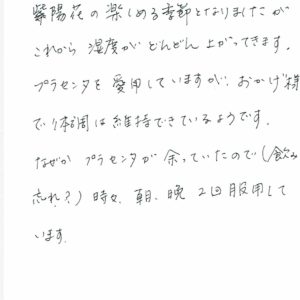 紫陽花の楽しめる季節となりましたが
これから湿度がどんどん上がってきます。
プラセンタを愛用していますが、おかげ様
で体調は維持できているようです。
なぜかプラセンタが余っていたので(飲み
忘れ?)時々、朝、晩2回服用して
います。